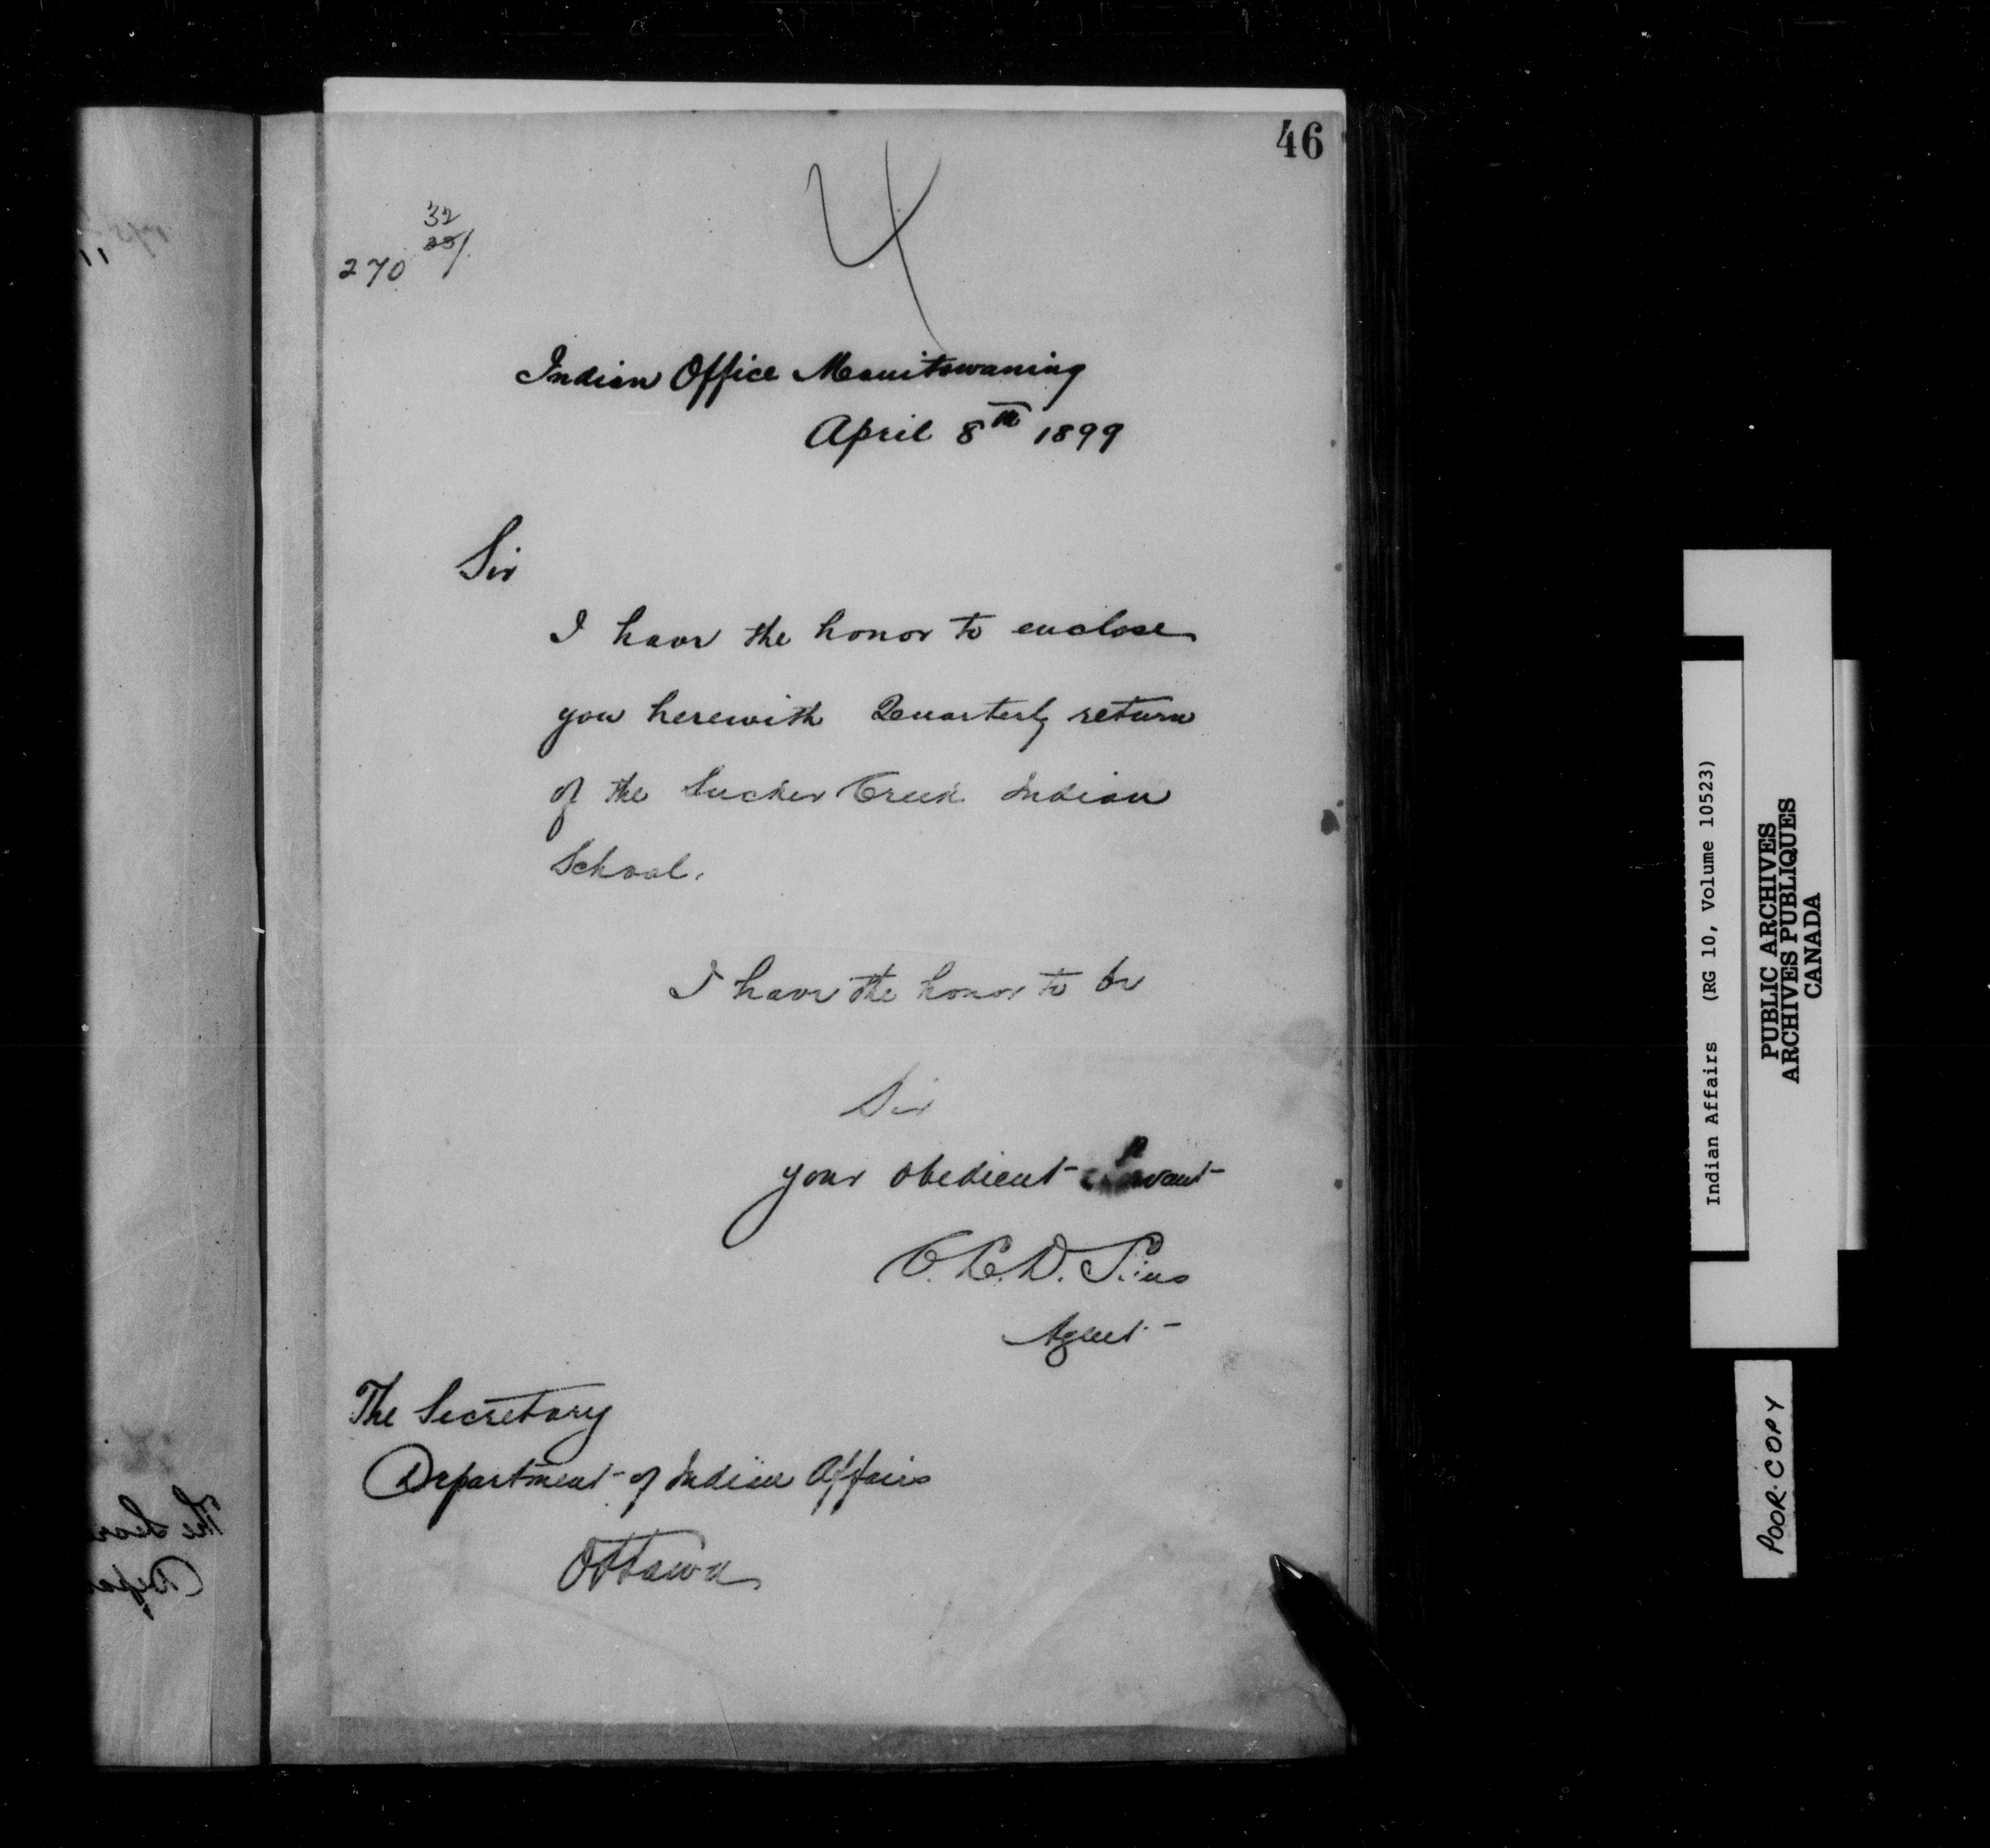 46
4
32
270
Indian Office Manitowaning
April 8th 1899
Sir
I have the honor to enclose
you herewith Quarterly return
of the Sucker Creek Indian
School.
I have the honor to be
Sir
your obedient servant
Agent
The Secretary
Department of Indian Affairs
Ottawa
Indian Affairs (RG 10, Volume 10523)
PUBLIC ARCHIVES
ARCHIVES PUBLIQUES
CANADA
POOR COPY
The Secre
Depa